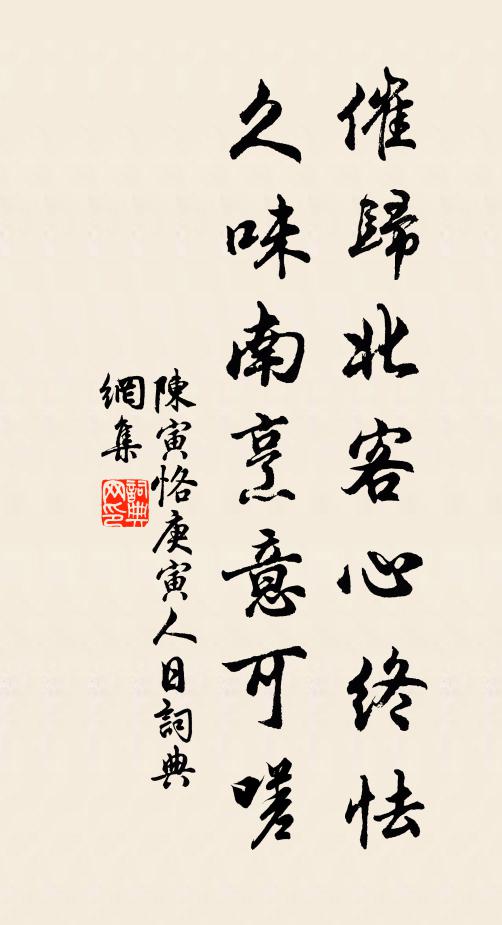 催歸北客心終怯
久味南烹意可嗟
陳寅恪庚寅人日詞典
網集
詞典網印